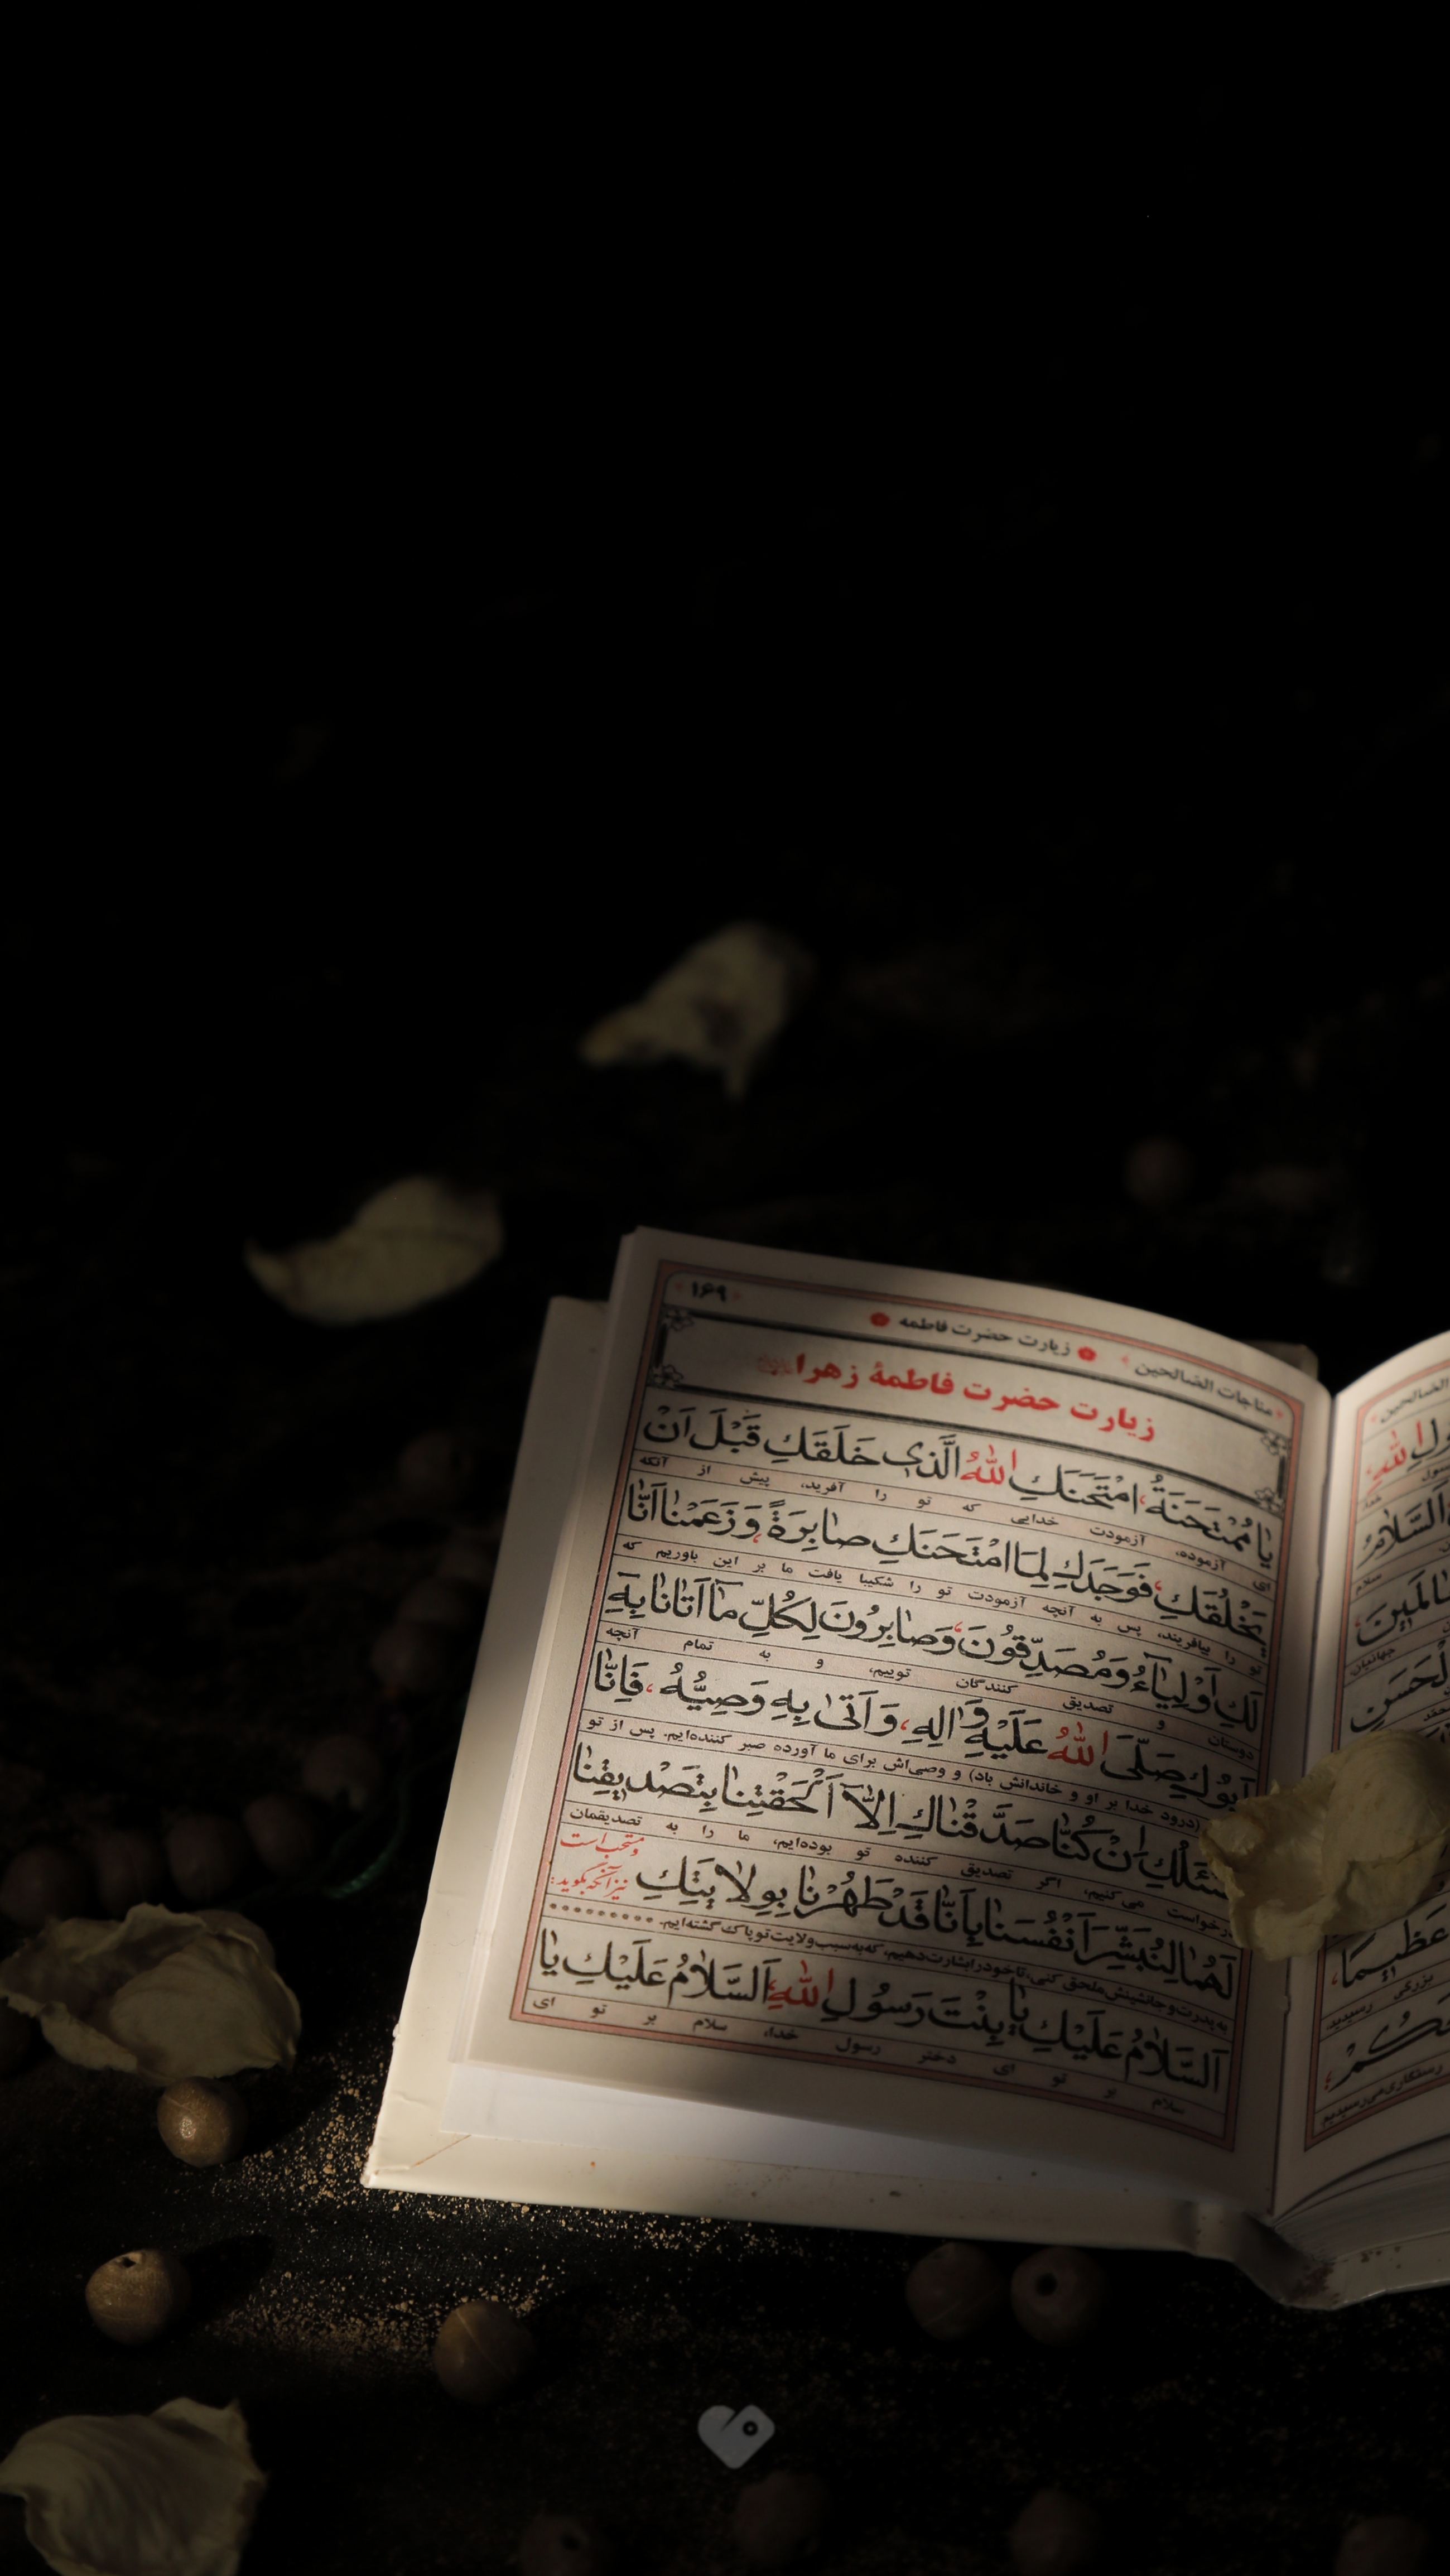 مناجات الصالحین زیارت حضرت فاطمه ۱۶۹
زیارت حضرت فاطمهٔ زهرا
یا مُمْتَحَنَةُ، امْتَحَنَكِ اللّٰهُ الَّذی خَلَقَكِ قَبْلَ اَنْ
ای آزموده، آزمودت خدایی که تو را آفرید، پیش از آنکه
یَخْلُقَكِ، فَوَجَدَكِ لِمَا امْتَحَنَكِ صابِرَةً، وَ زَعَمْنا اَنّا
تو را بیافریند، پس به آنچه آزمودت تو را شکیبا یافت ما بر این باوریم که
لَكِ اَوْلِیاءُ وَ مُصَدِّقُونَ، وَ صابِرُونَ لِكُلِّ ما اَتانا بِهِ
دوستان و تصدیق کنندگان توییم، و به تمام آنچه
اَبُوكِ صَلَّی اللّٰهُ عَلَیْهِ وَ الِهِ، وَ اَتی بِهِ وَصِیُّهُ، فَاِنّا
(درود خدا بر او و خاندانش باد) و وصی‌اش برای ما آورده صبر کننده‌ایم. پس از تو
اِنْ كُنّا صَدَّقْناكِ اِلاّ اَلْحَقْتِنا بِتَصْدیقِنا
درخواست می‌کنیم، اگر تصدیق کننده تو بوده‌ایم، ما را به تصدیقمان
لَهُما لِنُبَشِّرَ اَنْفُسَنا بِاَنّا قَدْ طَهُرْنا بِوِلایَتِكِ
و مستحب است نیز آنکه بگوید:
به پدرت و جانشینش ملحق کنی، تا خود را بشارت دهیم، که به سبب ولایت تو پاک گشته‌ایم.
اَلسَّلامُ عَلَیْكِ یا بِنْتَ رَسُولِ اللّٰهِ اَلسَّلامُ عَلَیْكِ یا
سلام بر تو ای دختر رسول خدا، سلام بر تو ای
الصالحین
اللّٰهِ
اَلسَّلامُ
سلام
جهانیان
عَظیماً
بزرگی رسیدید
رستگاری می‌رسیدیم